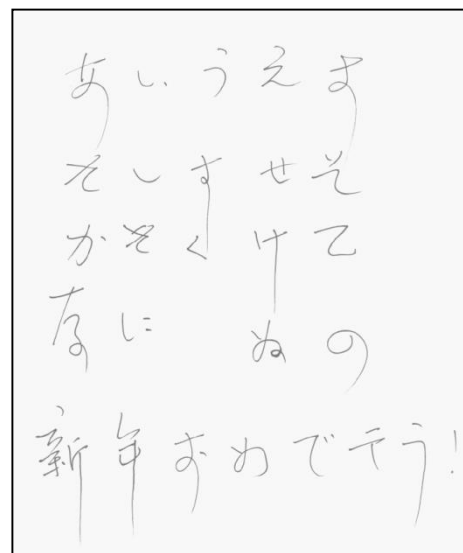 あいうえお
さしすせそ
かきくけこ
なに ぬの
新年おめでとう!